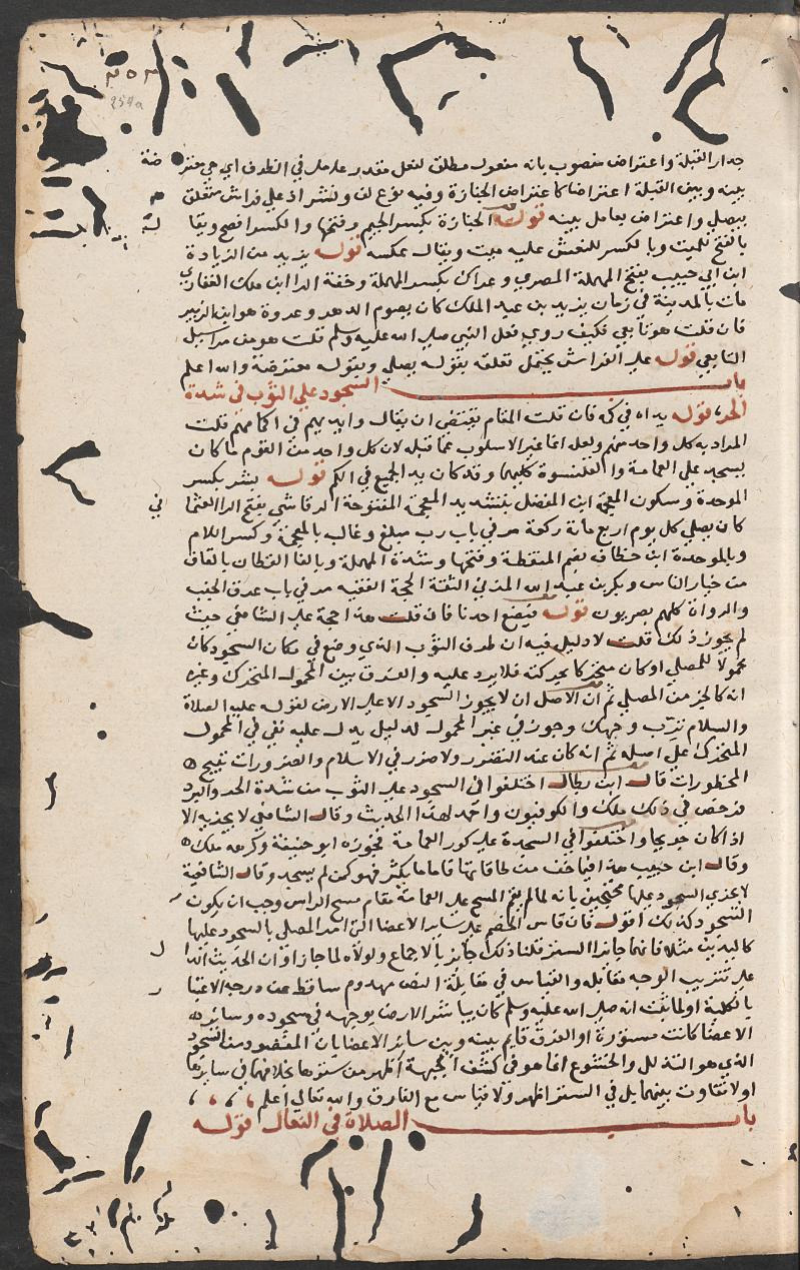 ٢٥٣
254a
جدار القبلة واعتراض منصوب بانه مفعول مطلق لفعل مقدر عامل في الظرف اي هي معترضة
بينه وبين القبلة اعتراضا كاعتراض الجنازة وفيه نوع لف ونشر اذ علي فراش متعلق
بيصلي واعتراض بعامل بينه قوله الجنازة بكسر الجيم وفتحها والكسر افصح ويقال
بالفتح للميت وبالكسر للنعش عليه ميت ويقال عكسه قوله يزيد من الزيادة
ابن ابي حبيب بفتح المهملة المصري وعراك بكسر المهملة وخفة الرا ابن ملك الغفاري
مات بالمدينة في زمان يزيد بن عبد الملك كان يصوم الدهر وعروة هو ابن الزبير
فان قلت هو تابعي فكيف روي فعل النبي صلي الله عليه وسلم قلت هو من مراسيل
التابعي قوله علي الفراش يحتمل تعلقه بقوله يصلي وبقوله معترضة والله اعلم
باب السجود علي الثوب في شدة
الحر قوله يداه في كمه فان قلت المقام يقتضي ان يقال وايديهم في اكمامهم قلت
المراد به كل واحد منهم ولعله انما غير الاسلوب عما قبله لان كل واحد من القوم ما كان
يسجد علي العمامة والقلنسوة كليهما وقد كان يد الجميع في الكم قوله بشر بكسر
الموحدة وسكون المعجمة ابن المفضل بتشديد المعجمة المفتوحة الرقاشي بفتح الرا العثماني
كان يصلي كل يوم اربع مائة ركعة مر في باب رب مبلغ وغالب بالمعجمة وكسر اللام
وبالموحدة ابن خطاف بضم المنقطة وفتحها وشدة المهملة وبالفا القطان بالقاف
من خيار الناس وبكر بن عبد الله المزني الثقة الحجة الفقيه مر في باب عرق الجنب
والرواة كلهم بصريون قوله فيضع احدنا فان قلت هذا حجة علي الشافعي حيث
لم يجوز ذلك قلت لا دليل فيه ان طرف الثوب الذي وضع في مكان السجود كان
محمولا للمصلي او كان متحركا بحركته فلا يرد عليه والفرق بين المحمول المتحرك وغيره
انه كالجز من المصلي ثم ان الاصل ان لا يجوز السجود الا علي الارض لقوله عليه الصلاة
والسلام ترب وجهك وجوز في غير المحمول لدليل يدل عليه بقي في المحمول
المتحرك علي اصله ثم انه كان عند التضرر ولا ضرر في الاسلام والضرورات تبيح
المحظورات قال ابن بطال اختلفوا في السجود علي الثوب من شدة الحر والبرد
فرخص في ذلك ملك والكوفيون واحمد لهذا الحديث وقال الشافعي لا يجزيه الا
اذا كان جريحا واختلفوا في السجدة علي كور العمامة فجوزه ابو حنيفة وكرهه ملك
وقال ابن حبيب هذا فيما خف من طاقاتها فاما ما يكثر فهو كمن لم يسجد وقال الشافعية
لا يجزي السجود عليها محتجين بانه لما لم يقم المسح علي العمامة مقام مسح الراس وجب ان يكون
السجود كذلك اقول فان قاس الخصم علي ساير الاعضا التي امر المصلي بالسجود عليها
كاليدين مثلا فانها جائزا الستر قلنا ذلك جائز بالاجماع ولولاه لما جاز او ان الحديث الدال
علي تتريب الوجه مقابله والقياس في مقابلة النص مهدوم ساقط عن درجة الاعتبار
بالكلية او لما ثبت انه صلي الله عليه وسلم كان يباشر الارض بوجهه في سجوده وساير
الاعضا كانت مستورة او الفرق قايم بينه وبين ساير الاعضا بان المقصود من السجود
الذي هو التذلل والخشوع انما هو في كشف الجبهة اظهر من سترها بخلافها في سايرها
او لا تفاوت بينهما بل في الستر اظهر ولا قياس مع الفارق والله تعالي اعلم
باب الصلاة في النعال قوله